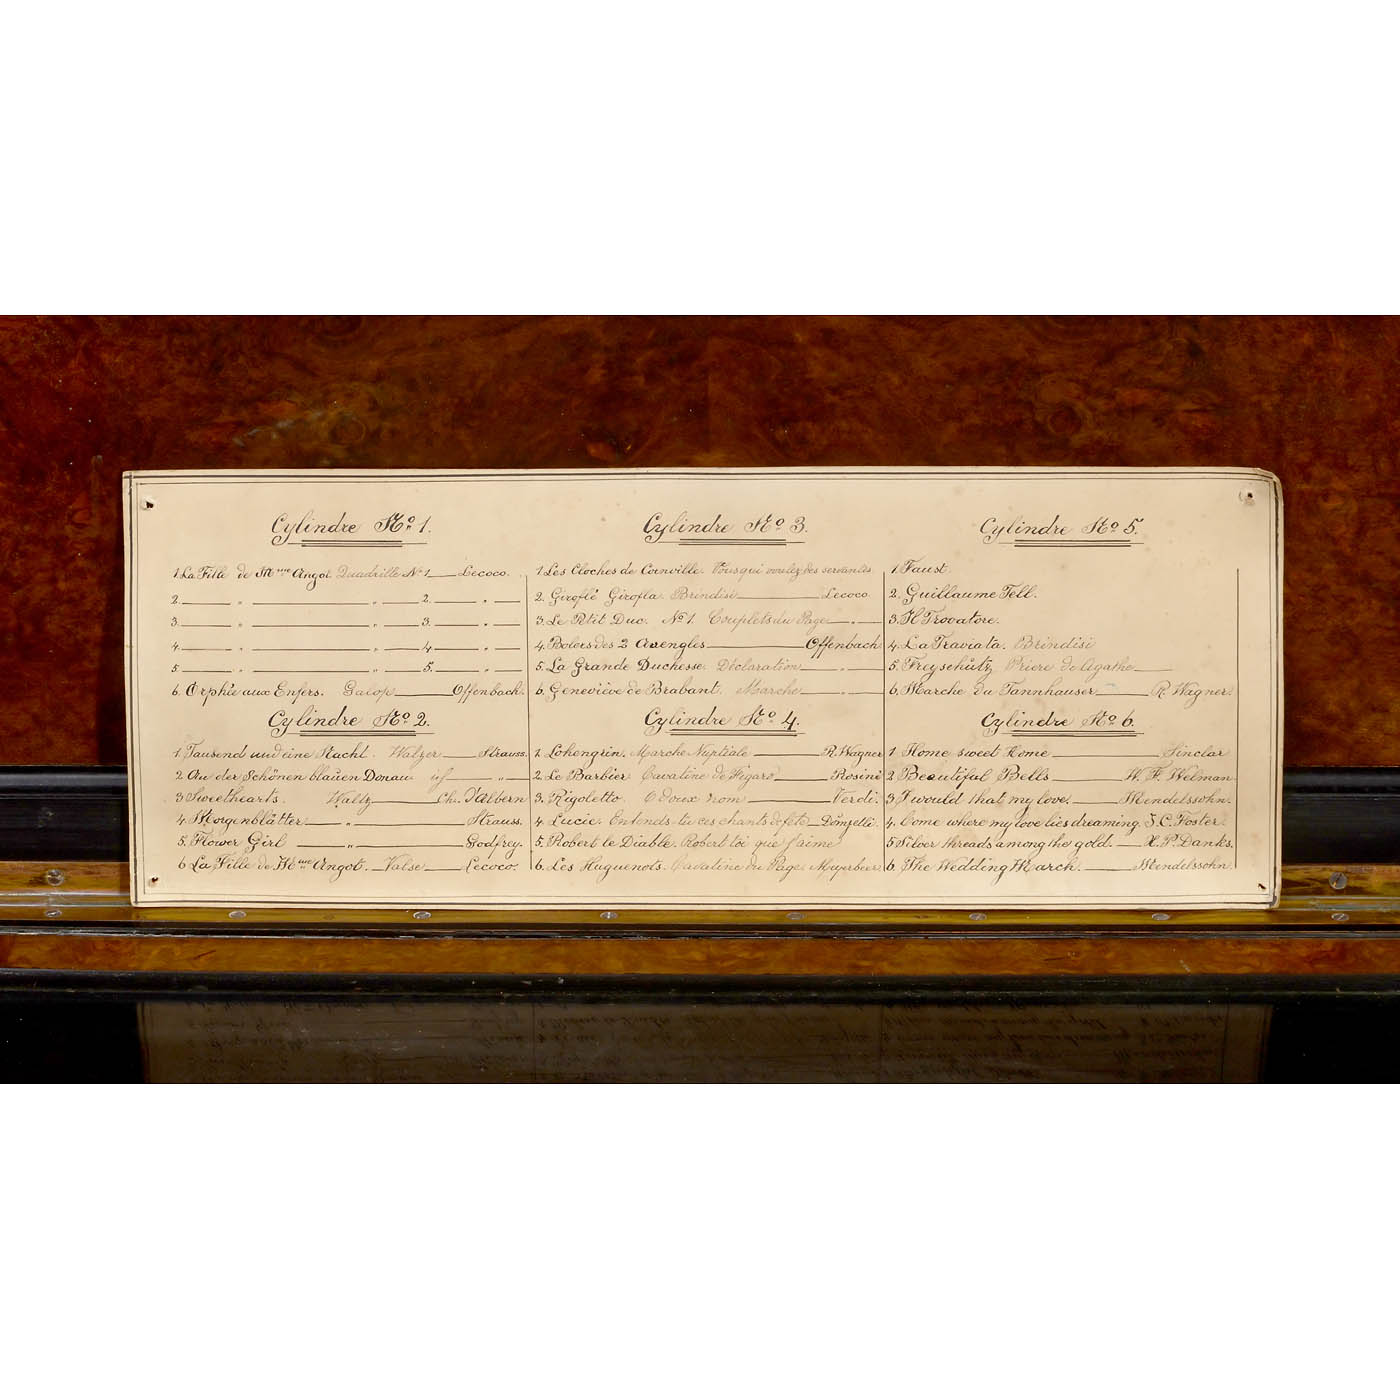 Cylindre No 1.
1. La Fille de Mme Angot Quadrille No 1 Lecoco.
2. " " 2. "
3. " " 3. "
4. " " 4 "
5. " " 5. "
6. Orphée aux Enfers. Galop Offenbach.
Cylindre No 2.
1 Tausend und eine Nacht. Walzer Strauss.
2 An der Schönen blauen Donau "
3 Sweethearts. Waltz Ch. D'Albern
4 Morgenblätter " Strauss.
5. Flower Girl " Godfrey.
6 La Fille de Mme Angot. Valse Lecoco.
Cylindre No 3.
1 Les Cloches de Corneville. Vous qui voulez des servantes
2. Giroflé Girofla. Brindisi Lecoco
3. Le Petit Duc. No 1. Couplets du Page "
4. Bolero des 2 Avengles Offenbach
5. La Grande Duchesse. Déclaration "
6. Geneviève de Brabant. Marche "
Cylindre No 4.
1. Lohengrin. Marche Nuptiale R. Wagner
2 Le Barbier Cavatine de Figaro Rosini
3. Rigoletto. O doux nom Verdi.
4. Lucie. Entends-tu ces chants de fête Donizelli.
5. Robert le Diable. Robert toi que j'aime
6. Les Huguenots. Cavatine du Page Meyerbeer
Cylindre No 5.
1. Faust.
2. Guillaume Tell.
3. Il Trovatore.
4. La Traviata. Brindisi
5. Freyschütz Priere de Agathe
6. Marche du Tannhauser R. Wagner.
Cylindre No 6.
1 Home sweet Home Sinclar
2 Beautiful Bells W. F. Welman
3 I would that my love. Mendelssohn.
4. Come where my love lies dreaming. S. C. Foster.
5 Silver threads among the gold. H. P. Danks.
6 The Wedding March. Mendelssohn.